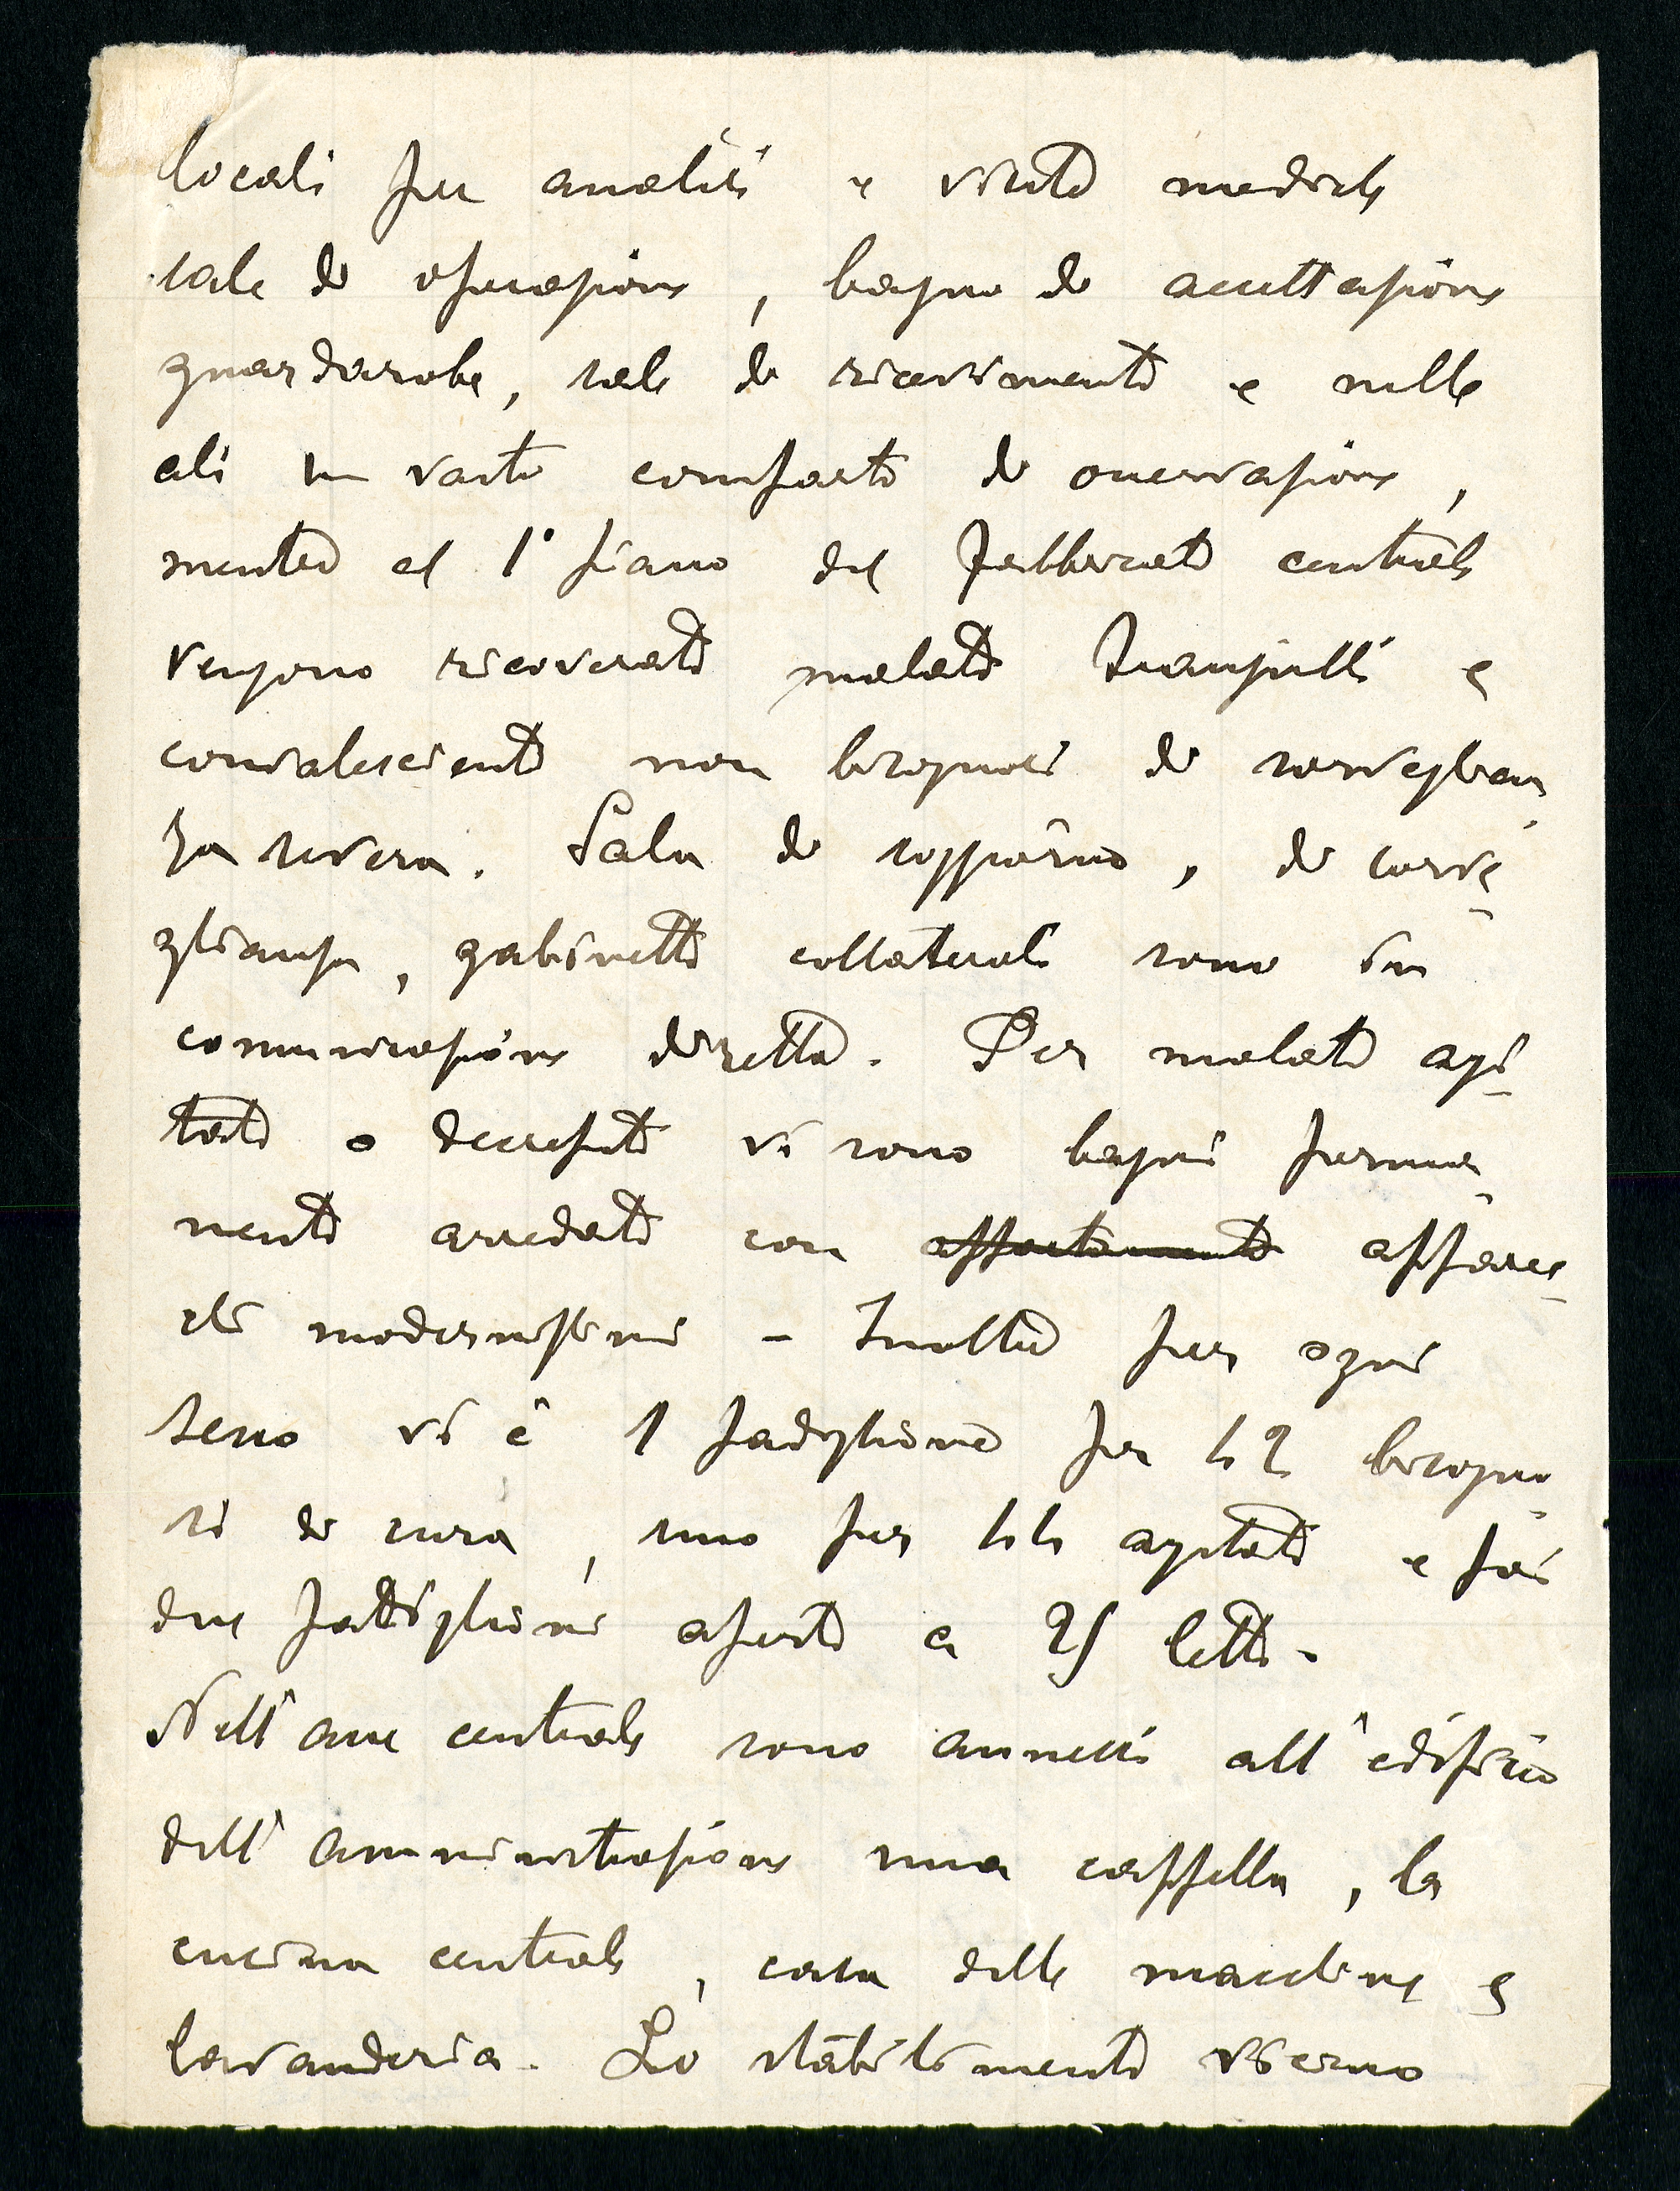 locali per analisi e visite mediche
sale di operazione, bagno di accettazione
guardaroba, sale di ricevimento e nelle
ali un vasto comparto di osservazione,
mentre al 1° piano del fabbricato centrale
vengono ricoverati malati tranquilli e
convalescienti non bisognosi di sorveglian-
za severa. Sala di soggiorno, di sorve-
glianza, gabinetti collaterali sono in
comunicazione diretta. Per malati agi-
tati o decrepiti vi sono bagni perma-
nenti arredati con appartamenti apparec-
chi modernissimi - Inoltre per ogni
sesso vi è 1 padiglione per 42 bisogno-
si di cura, uno per 44 agitati e poi
due padiglioni aperti a 25 letti -
Nell'asse centrale sono annessi all'edificio
dell'amministrazione una cappella, la
cucina centrale, casa delle macchine e
lavanderia. Lo stabilimento vierno